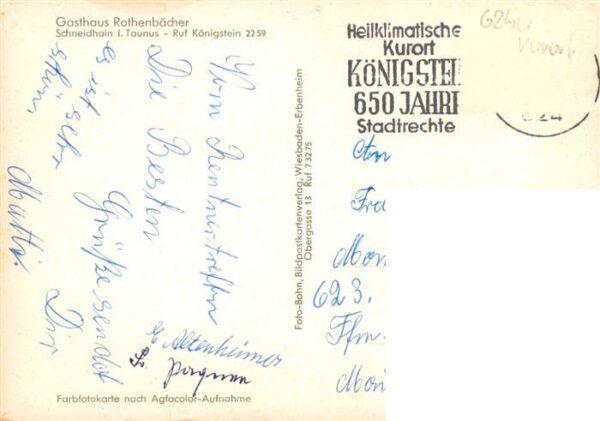 Gasthaus Rothenbächer
Schneidhain i. Taunus - Ruf Königstein 2259
Vom Rentnertreffen
Die Besten
Grüße sendet
Dir
Mutti.
es ist sehr
schön,
Altenheimer
Farbfotokarte nach Agfacolor-Aufnahme
Foto-Bohn, Bildpostkartenverlag, Wiesbaden-Erbenheim
Obergasse 13 Ruf 73275
Heilklimatische
Kurort
KÖNIGSTEI
650 JAHRE
Stadtrechte
624
6240
An
Fra
Mon
623.
Ffm.